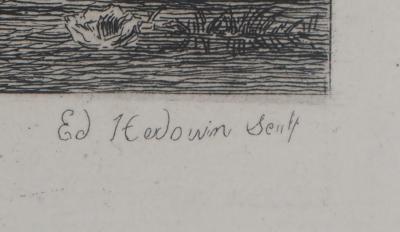 Ed Hedouin Sculp